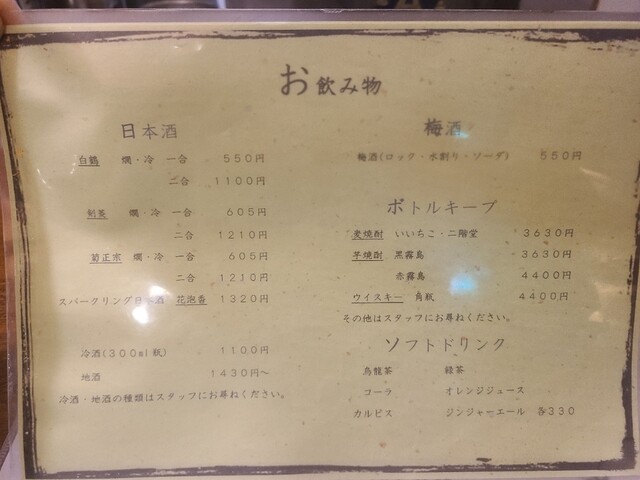 お飲み物
日本酒
白鶴 燗・冷 一合 550円
二合 1100円
剣菱 燗・冷 一合 605円
二合 1210円
菊正宗 燗・冷 一合 605円
二合 1210円
スパークリング日本酒 花泡香 1320円
冷酒(300ml瓶) 1100円
地酒 1430円～
冷酒・地酒の種類はスタッフにお尋ねください。
梅酒
梅酒(ロック・水割り・ソーダ) 550円
ボトルキープ
麦焼酎 いいちこ・二階堂 3630円
芋焼酎 黒霧島 3630円
赤霧島 4400円
ウイスキー 角瓶 4400円
その他はスタッフにお尋ねください。
ソフトドリンク
烏龍茶 緑茶
コーラ オレンジジュース
カルピス ジンジャーエール 各330